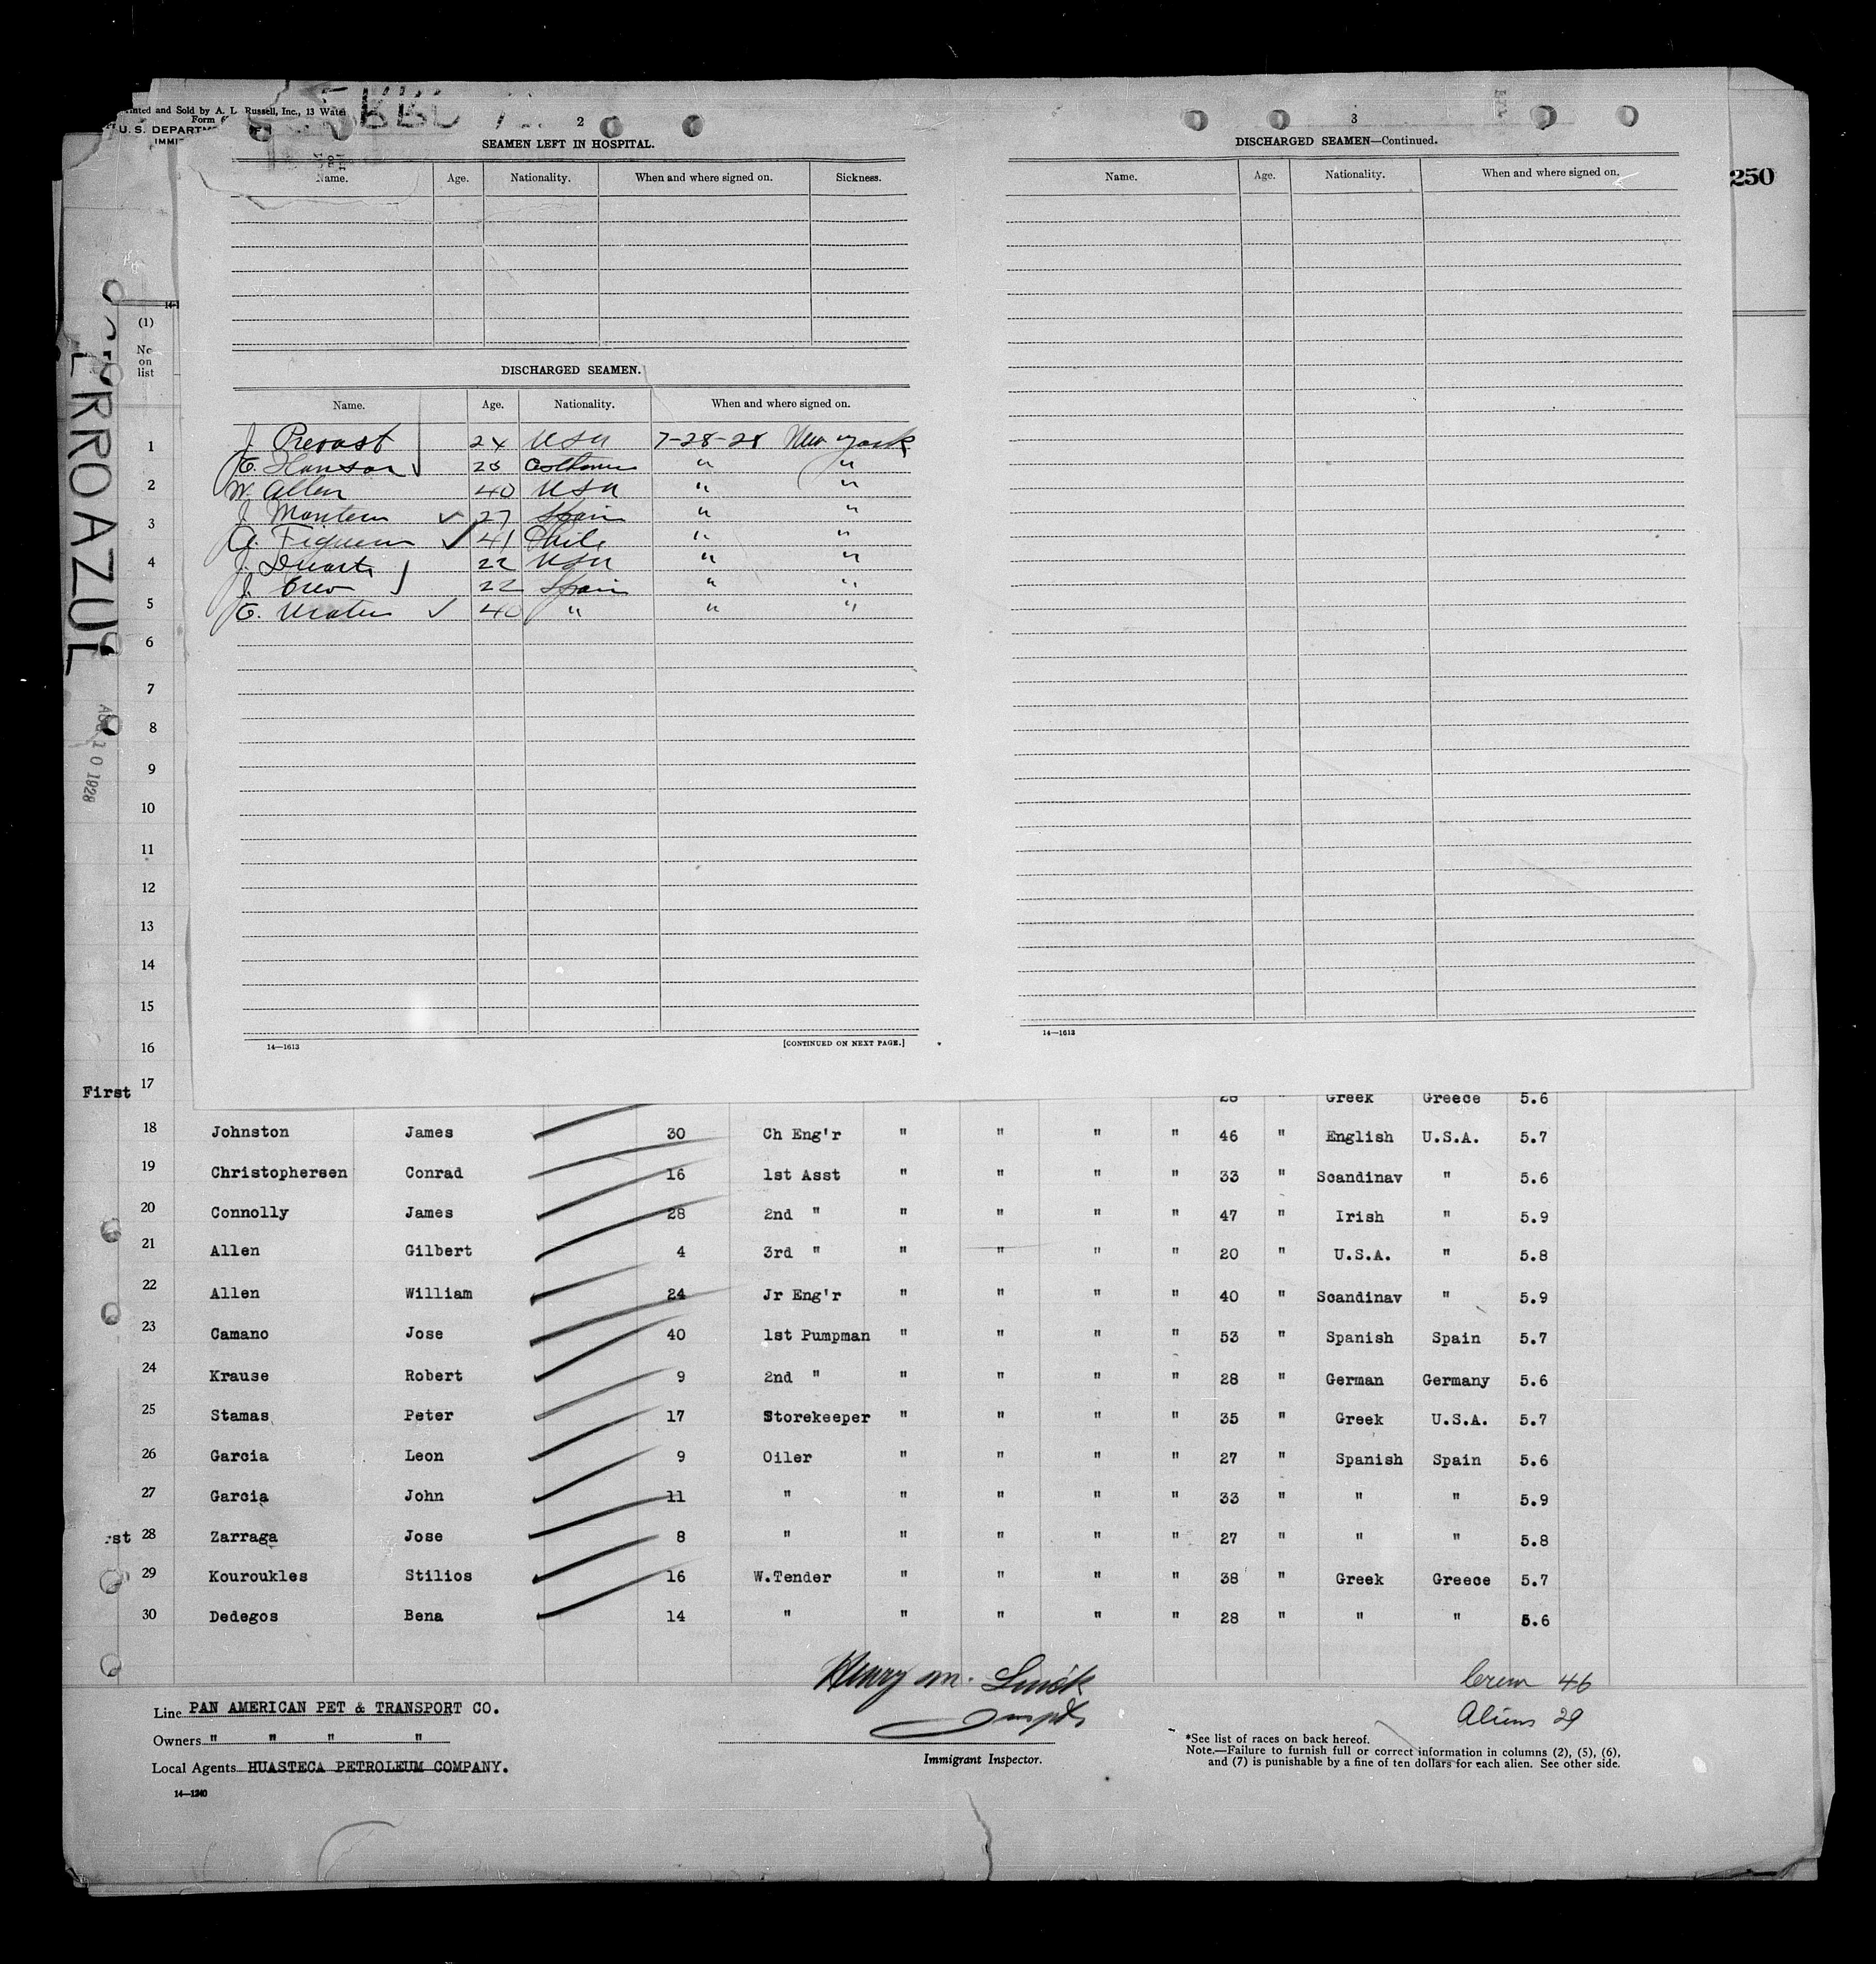 Printed and Sold by A. L. Russell, Inc., 13 Water
Form
U. S. DEPARTM
IMMI
2
SEAMEN LEFT IN HOSPITAL.
Name. Age. Nationality. When and where signed on. Sickness.
DISCHARGED SEAMEN.
Name. Age. Nationality. When and where signed on.
J. Prevost 24 USA 7-28-28 New York
E. Hanson 25 " "
W. Allen 40 USA " "
J. 27 Spain " "
A. 41 Chile " "
J. Duarte 22 USA " "
J. 22 Spain " "
E. 40 " " "
14—1613
[CONTINUED ON NEXT PAGE.]
3
DISCHARGED SEAMEN—Continued.
Name. Age. Nationality. When and where signed on.
14—1613
250
CERRO AZUL
AUG 10 1928
(1)
No
on
list
1
2
3
4
5
6
7
8
9
10
11
12
13
14
15
16
First 17 28 " Greek Greece 5.6
18 Johnston James 30 Ch Eng'r " " " " 46 " English U.S.A. 5.7
19 Christophersen Conrad 16 1st Asst " " " " 33 " Scandinav " 5.6
20 Connolly James 28 2nd " " " " " 47 " Irish " 5.9
21 Allen Gilbert 4 3rd " " " " " 20 " U.S.A. " 5.8
22 Allen William 24 Jr Eng'r " " " " 40 " Scandinav " 5.9
23 Camano Jose 40 1st Pumpman " " " " 53 " Spanish Spain 5.7
24 Krause Robert 9 2nd " " " " " 28 " German Germany 5.6
25 Stamas Peter 17 Storekeeper " " " " 35 " Greek U.S.A. 5.7
26 Garcia Leon 9 Oiler " " " " 27 " Spanish Spain 5.6
27 Garcia John 11 " " " " " 33 " " " 5.9
rst 28 Zarraga Jose 8 " " " " " 27 " " " 5.8
29 Kouroukles Stilios 16 W.Tender " " " " 38 " Greek Greece 5.7
30 Dedegos Bena 14 " " " " " 28 " " " 5.6
Henry M.
Crew 46
Aliens 29
Line PAN AMERICAN PET & TRANSPORT CO.
Owners " " " "
Local Agents HUASTECA PETROLEUM COMPANY.
14—1240
Immigrant Inspector.
*See list of races on back hereof.
Note.—Failure to furnish full or correct information in columns (2), (5), (6),
and (7) is punishable by a fine of ten dollars for each alien. See other side.